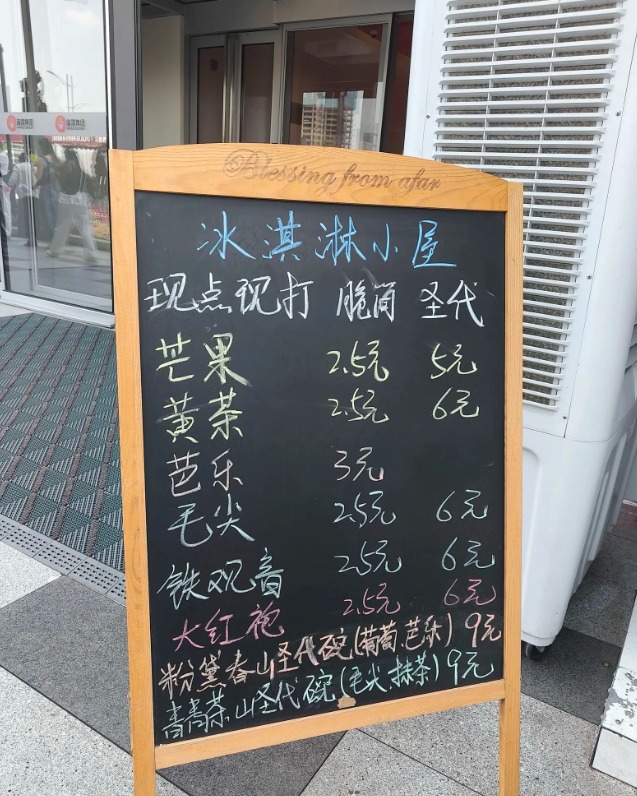 Blessing from afar
冰淇淋小屋
现点现打 脆筒 圣代
芒果 2.5元 5元
黄茶 2.5元 6元
芭乐 3元
毛尖 2.5元 6元
铁观音 2.5元 6元
大红袍 2.5元 6元
粉黛春山圣代碗(葡萄、芭乐) 9元
青青茶山圣代碗(毛尖、抹茶) 9元